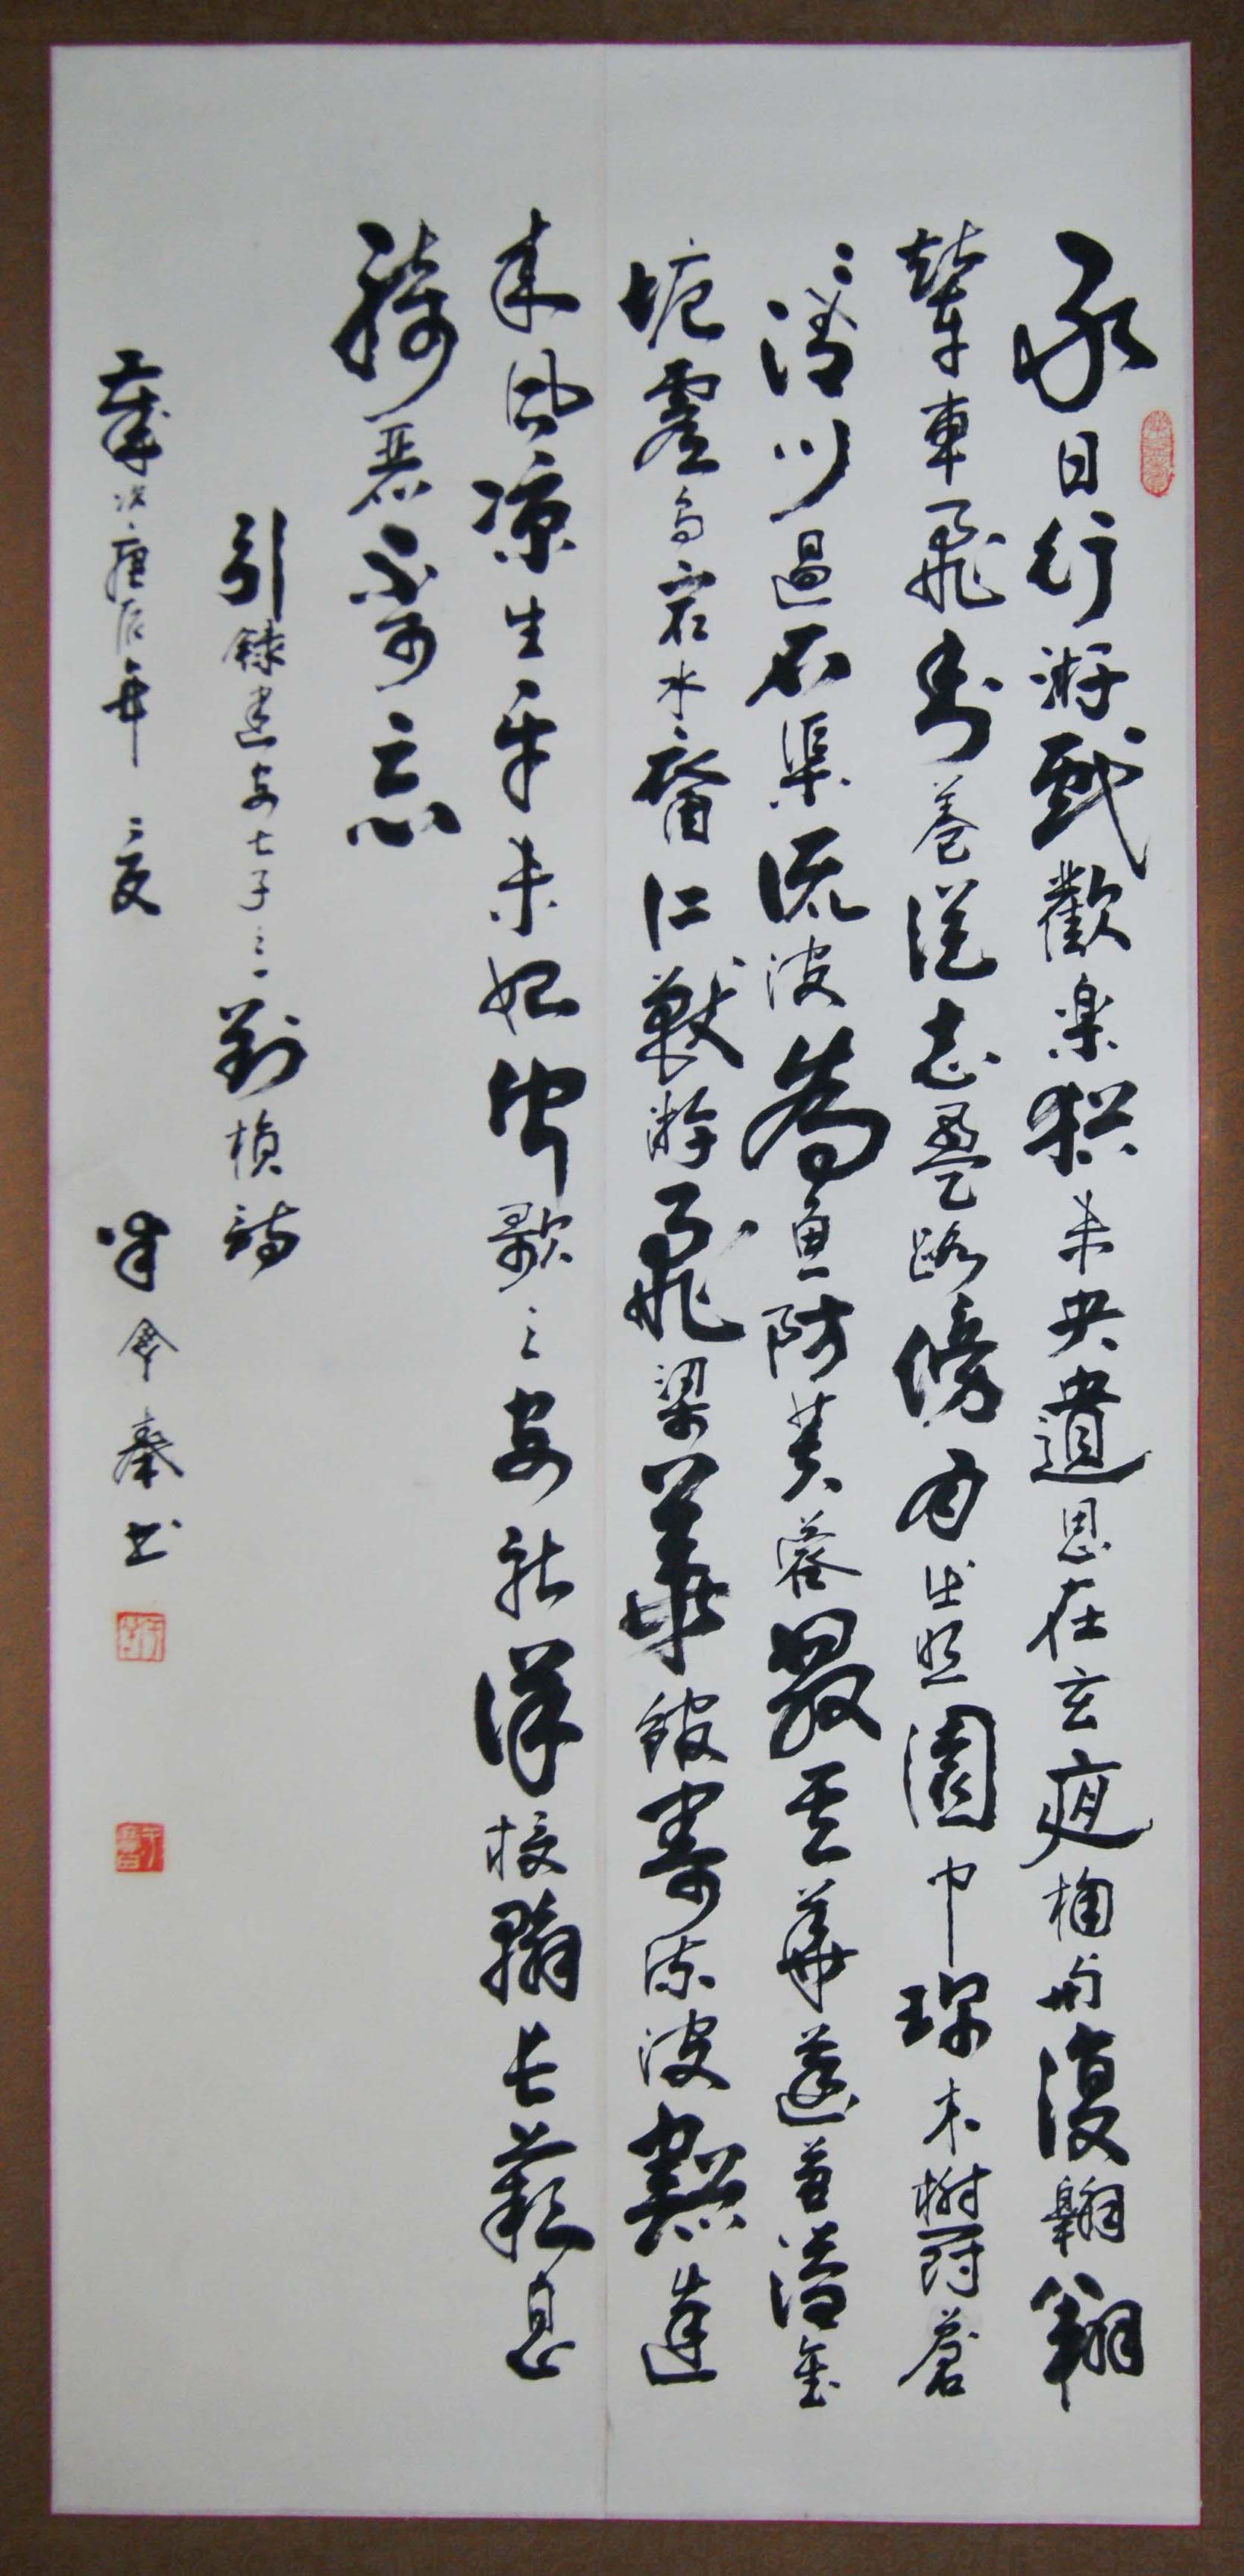 永日行遊戲歡樂猶未央遺思在玄夜相與復翱翔
輦車飛素蓋從者盈路傍月出照園中珍木鬱蒼
〻清川過石渠流波為魚防芙蓉散其華菡萏溢金
塘靈鳥宿水裔仁獸遊飛梁華館寄流波豁達
來風涼生平未始聞歌之安能詳投翰長歎息
綺麗不可忘
引錄建安七子之一劉楨詩
歲次庚辰年 夏
奉書